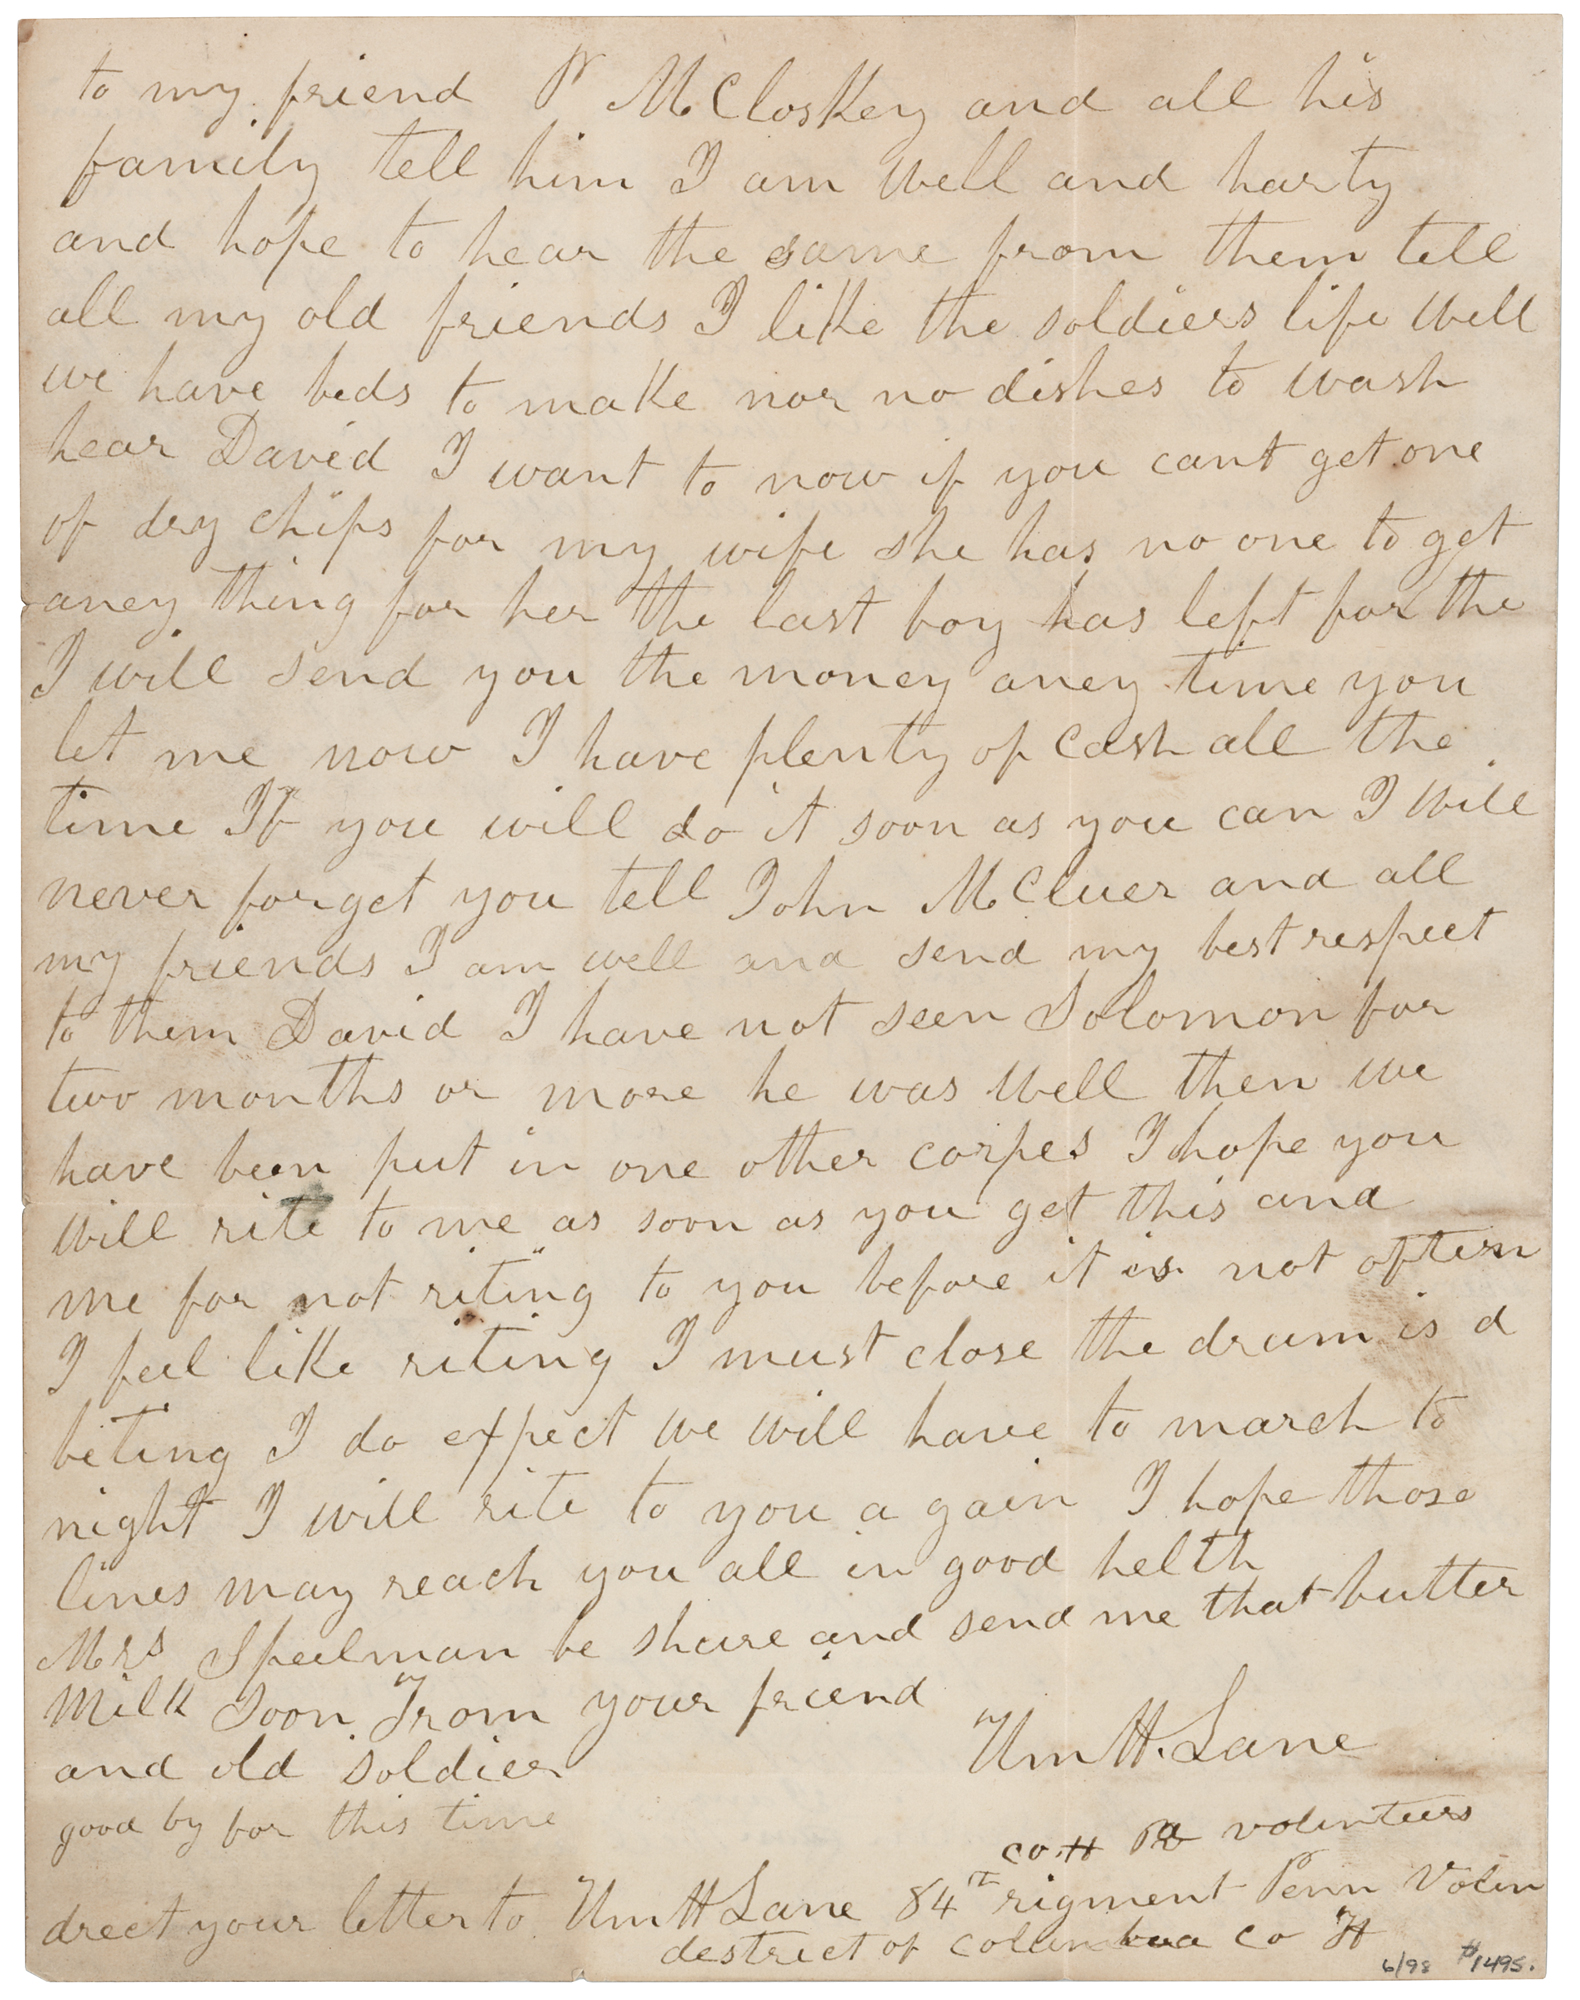 to my friend P McCloskey and all his
family tell him I am well and harty
and hope to hear the same from them tell
all my old friends I like the soldiers life well
we have beds to make nor no dishes to wash
hear David I want to now if you cant get one
of dry chips for my wife she has no one to get
aney thing for her the last boy has left for the
I will send you the money aney time you
let me now I have plenty of cash all the
time If you will do it soon as you can I will
never forget you tell John McCluer and all
my friends I am well and send my best respect
to them David I have not seen Solomon for
two months or more he was well then we
have been put in one other corpes I hope you
will rite to me as soon as you get this and
me for not riting to you before it is not often
I feel like riting I must close the drum is a
beting I do expect we will have to march to
night I will rite to you a gain I hope those
lines may reach you all in good helth
Mrs Speelman be shure and send me that butter
Milk soon From your friend
Wm H. Lane
and old soldier
good by for this time
co. H Pa volinteers
drect your letter to Wm H Lane 84th rigment Penn Volin
destrict of columbua co H
6/98 #1495.